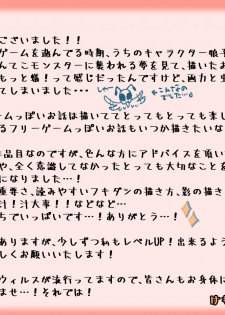 ございました！！
ゲームを遊んでる時期、うちのキャラクター娘子
んてこモンスターに襲われる夢を見て、描いた
もっと蟻！って感じだったんですけど、画力と
てしまいました・・・
しゃー
こんなの
でした…
ームっぽいお話は描いててとってもとっても楽し
るフリーゲームっぽいお話もいつか描きたいな
作品目なのですが、色んな方にアドバイスを頂い
や、全く意識してなかったとっても大切なことを
になりました…！
重要さ、読みやすいフキダシの描き方、影の描き
汁！汁大事！！などなど…
ちでいっぱいです…！ありがとう…！
ありますが、少しずつ私もレベルUP！出来るよう
しくお願いいたします！
ウィルスが流行ってますので、皆さんもお身体に
ませ…！それでは！